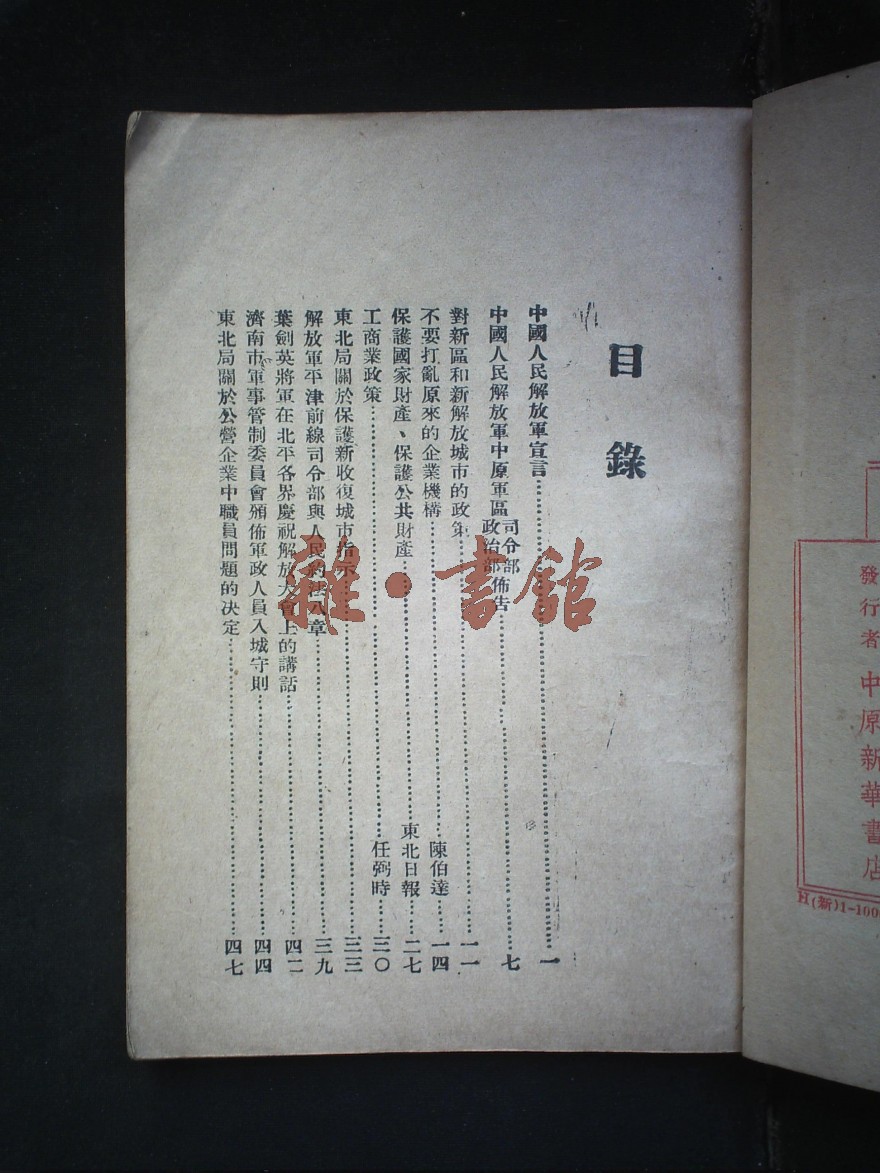 發行者 中原新華書店
H(新)1-100
目錄
中國人民解放軍宣言……一
中國人民解放軍中原軍區司令部政治部佈告……七
對新區和新解放城市的政策……一一
不要打亂原來的企業機構……陳伯達……一四
保護國家財產、保護公共財產……東北日報……二七
工商業政策……任弼時……三〇
東北局關於保護新收復城市指示……三三
解放軍平津前線司令部與人民約法八章……三九
葉劍英將軍在北平各界慶祝解放大會上的講話……四二
濟南市軍事管制委員會頒佈軍政人員入城守則……四四
東北局關於公營企業中職員問題的決定……四七
雜·書館